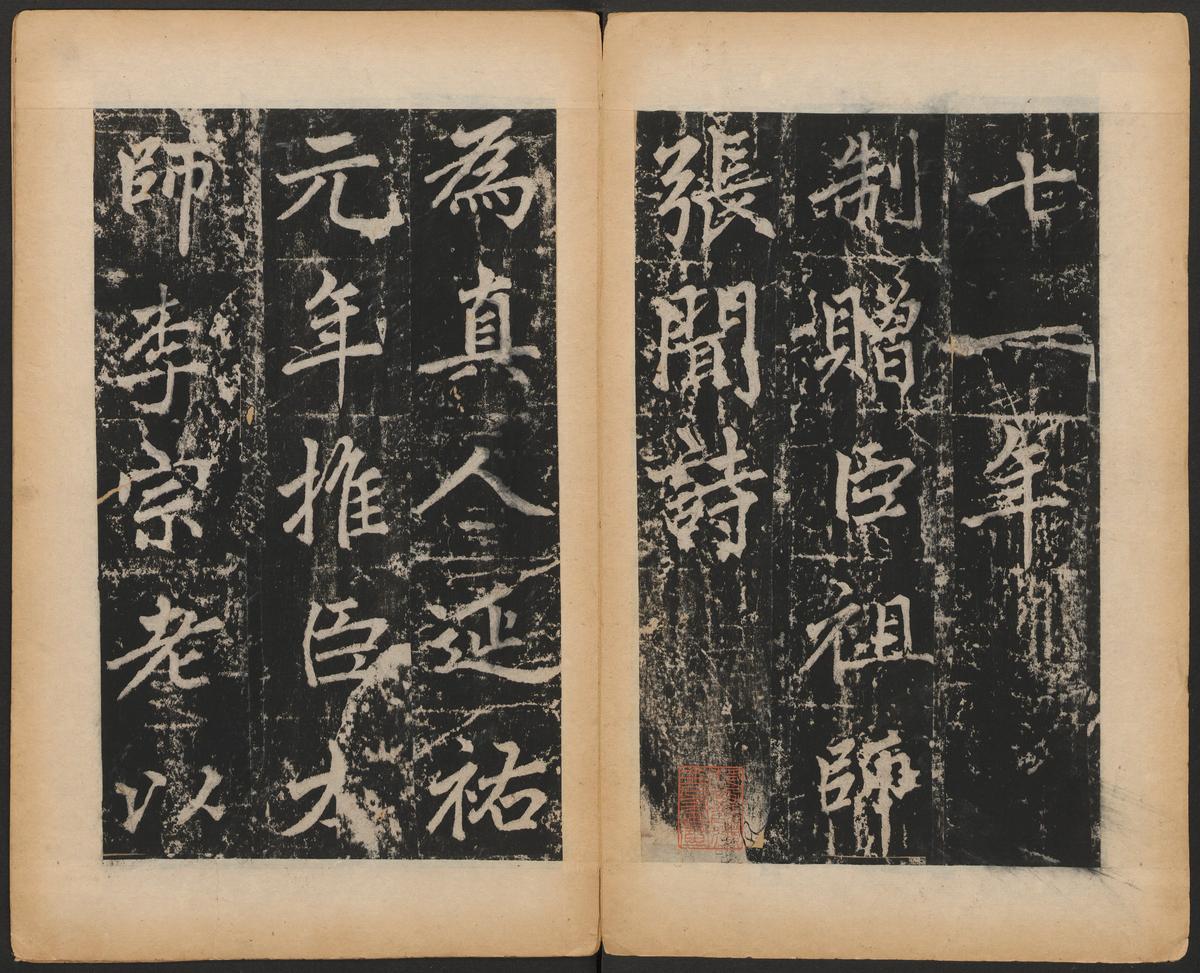 七一年
制贈臣祖師
張聞詩
為真人延祐
元年推臣太
師李宗老以